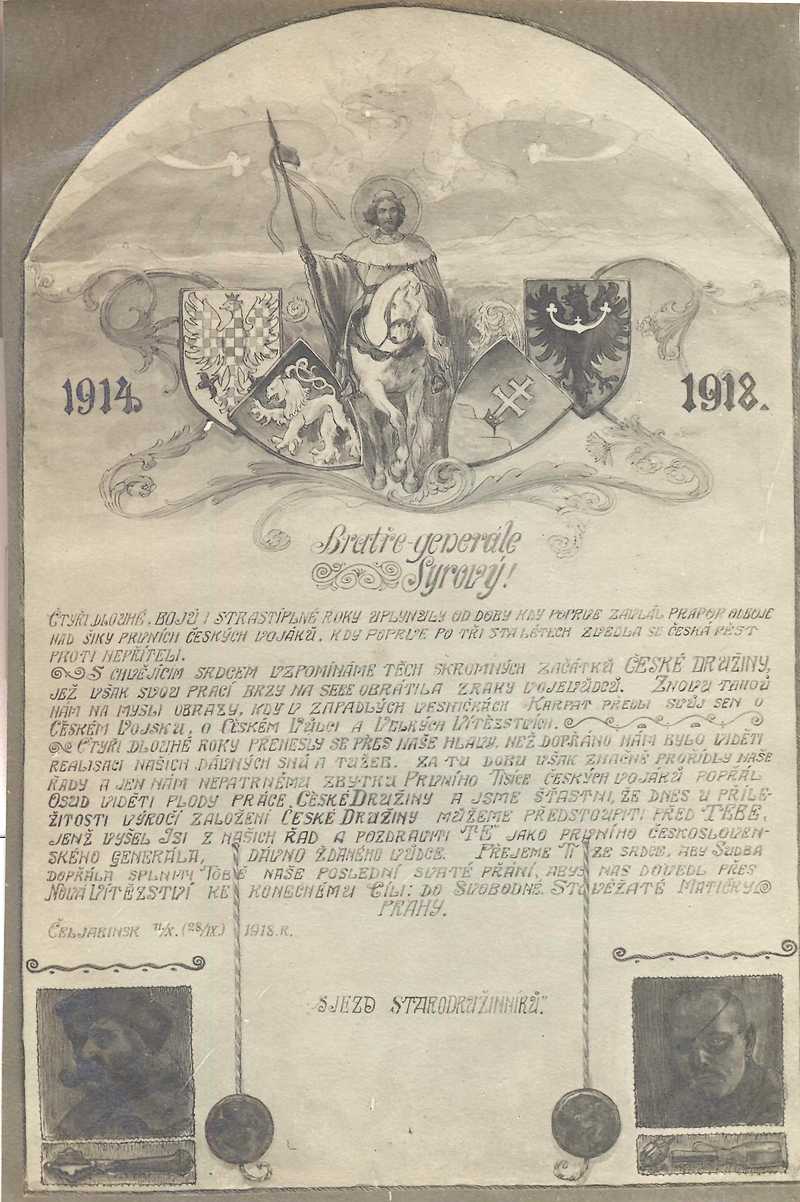 1914.
1918.
Bratře-generále
Syrový!
Čtyři dlouhé, bojů i strastiplné roky uplynuly od doby kdy poprve zavlál prapor odboje
nad šiky prvních českých vojáků, kdy poprve po tři sta létech zvedla se česká pěst
proti nepříteli.
S chvějícím srdcem vzpomínáme těch skromných začátků České Družiny,
jež však svou prací brzy na sebe obrátila zraky vojevůdců. Znovu tanou
nám na mysli obrazy, kdy v zapadlých vesničkách Karpat předli svůj sen o
Českém Vojsku, o Českém Vůdci a Velkých Vítězstvích.
Čtyři dlouhé roky přenesly se přes naše hlavy, než dopřáno nám bylo viděti
realisaci našich dávných snů a tužeb. Za tu dobu však značně prořídly naše
řady a jen nám nepatrnému zbytku Prvního Tisíce českých vojáků popřál
Osud viděti plody práce České Družiny a jsme šťastni, že dnes u příle-
žitosti výročí založení České Družiny můžeme předstoupiti před Tebe,
jenž vyšel jsi z našich řad a pozdraviti Tě jako prvního českosloven-
ského generála, dávno žádaného vůdce. Přejeme Ti ze srdce, aby Sudba
dopřála splniti Tobě naše poslední svaté přání, abys nás dovedl přes
Nová vítězství ke konečnému Cíli: do Svobodné, Stověžaté Matičky
Prahy.
Čeljabinsk 11/X. (28/IX.) 1918.r.
"Sjezd Starodružinníků."